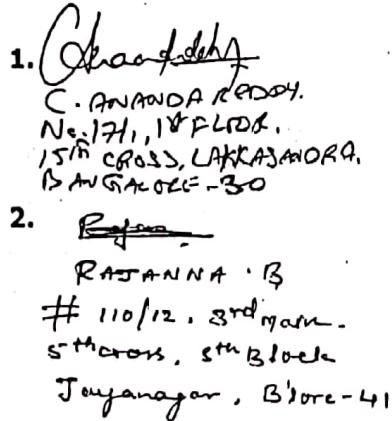 1.
C. ANANDA REDDY.
No. 171, 1st FLOOR.
15th CROSS, LAKKASANDRA,
BANGALORE-30
2.
RAJANNA . B
# 110/12, 3rd main.
5th cross, 5th Block
Jayanagar, B'lore-41